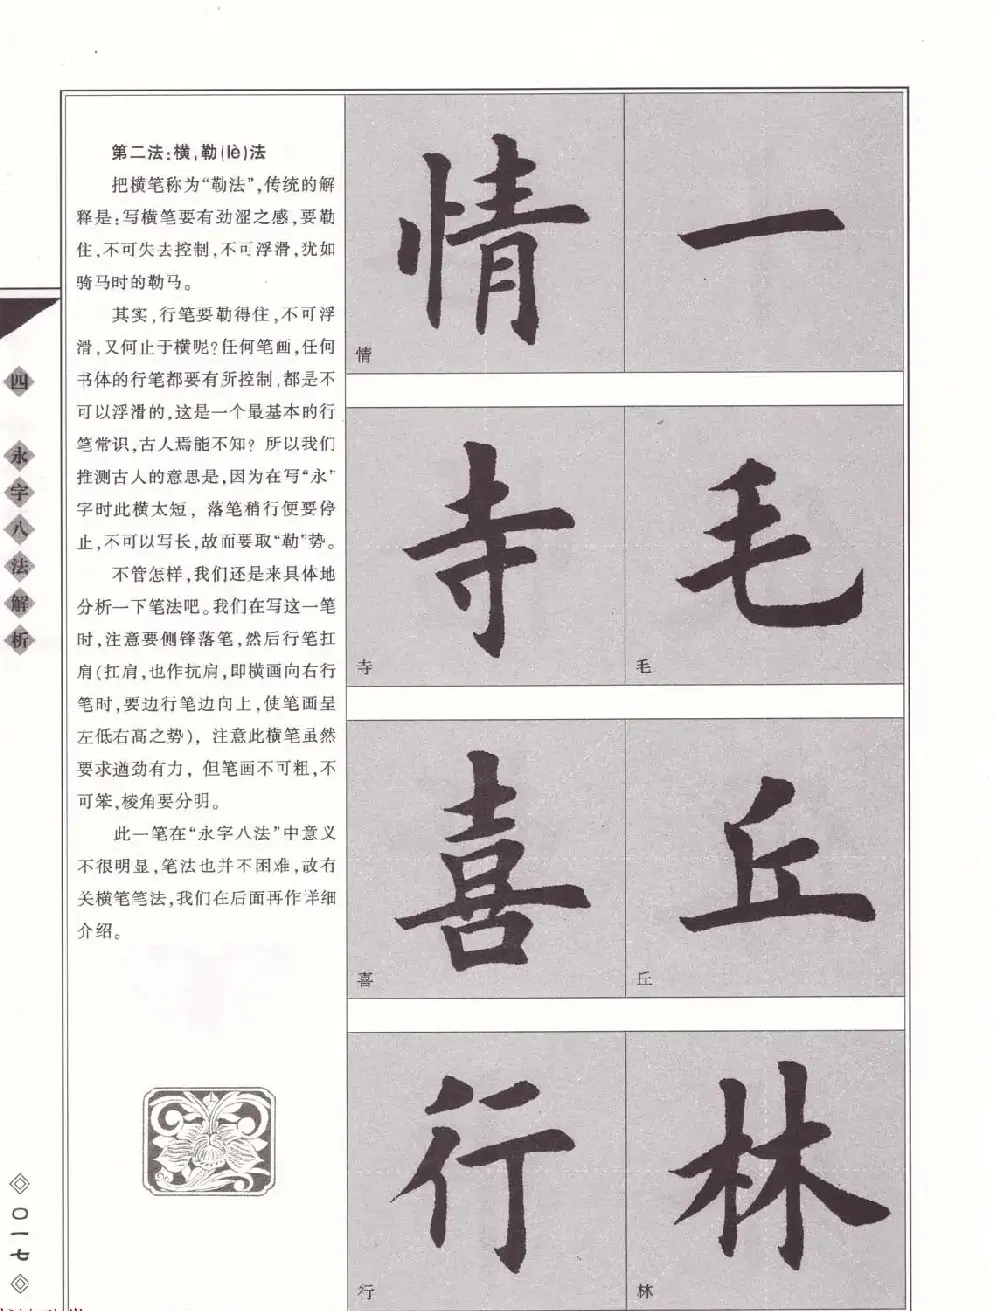 第二法:横,勒(lè)法
把横笔称为“勒法”,传统的解
释是:写横笔要有劲涩之感,要勒
住,不可失去控制,不可浮滑,犹如
骑马时的勒马。
其实,行笔要勒得住,不可浮
滑,又何止于横呢?任何笔画,任何
书体的行笔都要有所控制,都是不
可以浮滑的,这是一个最基本的行
笔常识,古人焉能不知? 所以我们
推测古人的意思是,因为在写“永”
字时此横太短, 落笔稍行便要停
止,不可以写长,故而要取“勒”势。
不管怎样,我们还是来具体地
分析一下笔法吧。我们在写这一笔
时,注意要侧锋落笔,然后行笔扛
肩(扛肩,也作抗肩,即横画向右行
笔时,要边行笔边向上,使笔画呈
左低右高之势), 注意此横笔虽然
要求遒劲有力, 但笔画不可粗,不
可笨,棱角要分明。
此一笔在“永字八法”中意义
不很明显,笔法也并不困难,故有
关横笔笔法,我们在后面再作详细
介绍。
情
情
一
寺
寺
毛
毛
喜
喜
丘
丘
行
行
林
林
四 永字八法解析
〇一七